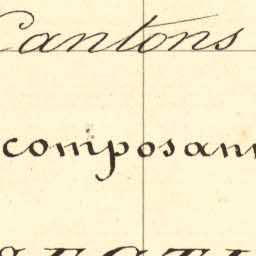 Cantons
composan